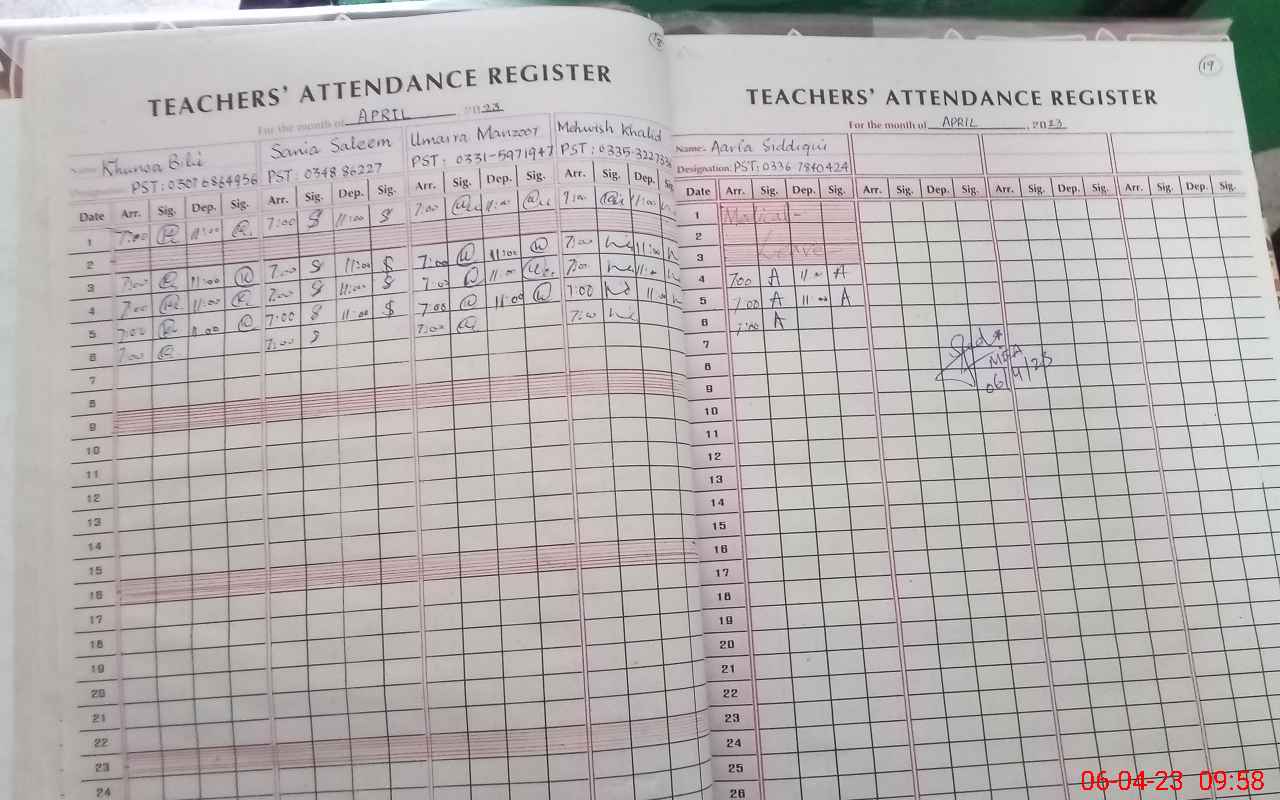 18
TEACHERS' ATTENDANCE REGISTER
For the month of APRIL, 2023
Name Khunsa Bibi Sania Saleem Umarra Manzoor Mehwish Khalid
PST: 0348 86227 PST: 0331-5971947
Date Arr. Sig. Dep. Sig. Arr. Sig. Dep. Sig. Arr. Sig. Dep. Sig. Arr. Sig. Dep. Sig.
1 7:00 11:00 7:00 11:00 7:00 11:00 7:00 11:00
2
3 7:00 11:00 7:00 11:00 7:00 11:00 7:00 11:00
4 7:00 11:00 7:00 11:00 7:00 11:00 7:00 11:00
5 7:00 11:00 7:00 11:00 7:00 11:00 7:00 11:00
6 7:00 7:00 7:00 7:00
7
8
9
10
11
12
13
14
15
16
17
18
19
20
21
22
23
24
19
TEACHERS' ATTENDANCE REGISTER
For the month of APRIL, 2023
Name:- Aaria Siddiqui
Designation PST: 0336 7840424
Date Arr. Sig. Dep. Sig. Arr. Sig. Dep. Sig. Arr. Sig. Dep. Sig. Arr. Sig. Dep. Sig.
1
2
3 Leave
4 7:00 A 11:00 A
5 7:00 A 11:00 A
6 7:00 A
7
8
9
10
11
12
13
14
15
16
17
18
19
20
21
22
23
24
25
26
MEA
06/4/23
06-04-23 09:58